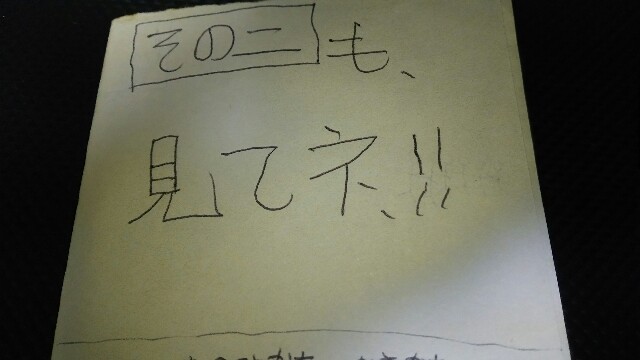 その二も、
見てネ!!